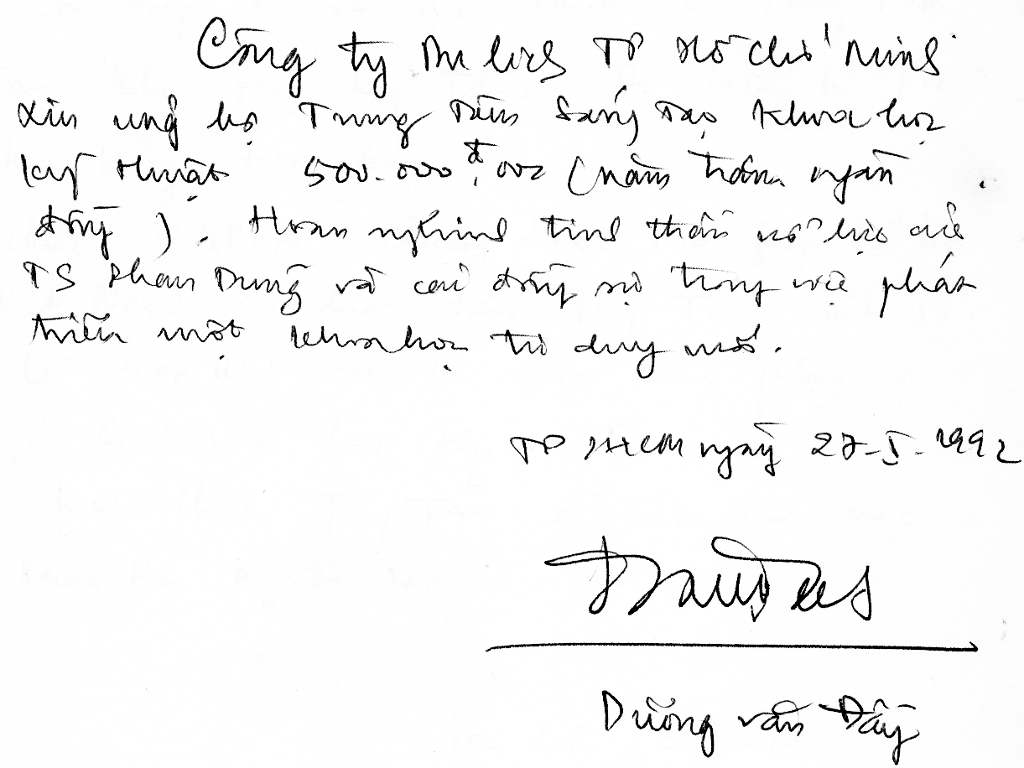 Công ty Du lịch TP Hồ Chí Minh
xin ủng hộ Trung Tâm Sáng Tạo Khoa học
kỹ thuật 500.000đ,00 (năm trăm ngàn
đồng). Hoan nghinh tinh thần nỗ lực của
TS Phan Dũng và các đồng sự trong việc phát
triển một khoa học tư duy mới.
TP HCM ngày 27-5-1992
Dương Văn Đầy